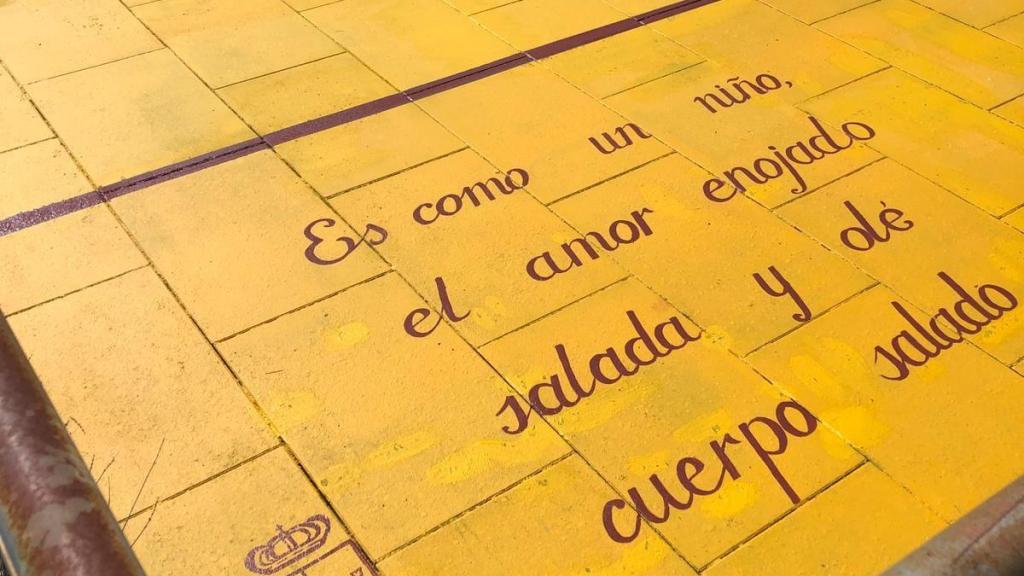 Es como un niño,
el amor enojado
salada y olé
cuerpo salado